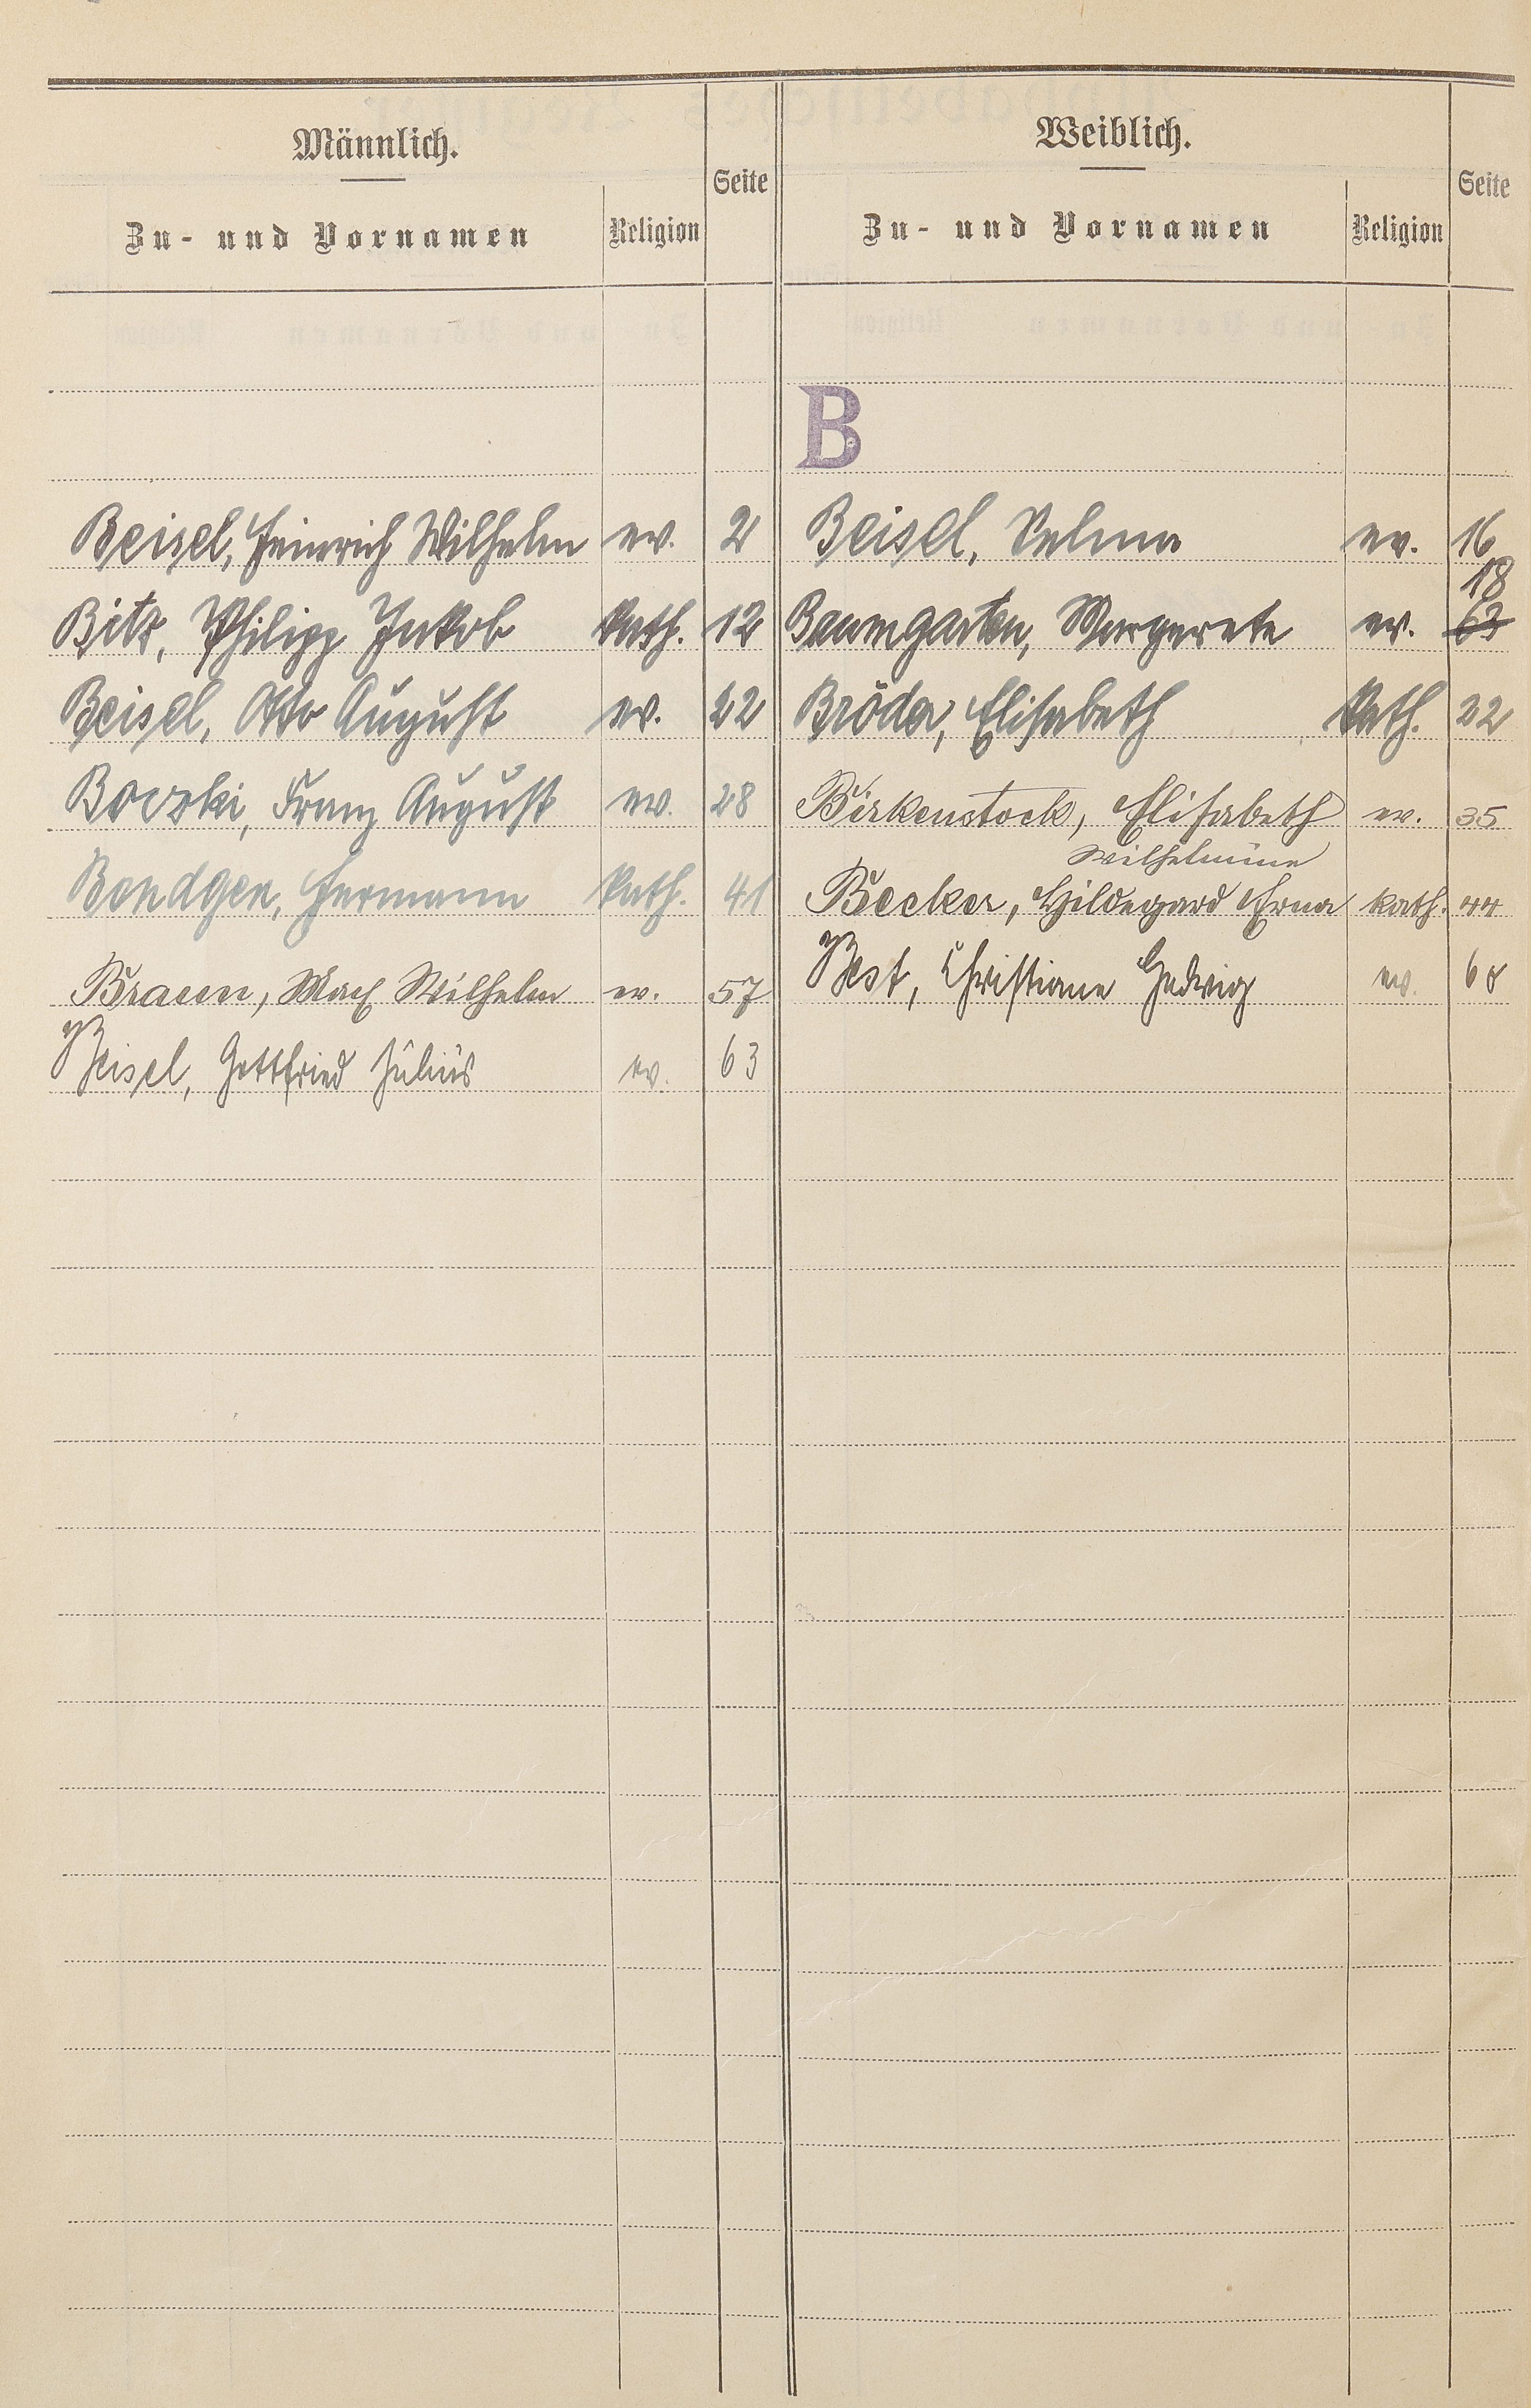 Männlich.
Zu- und Vornamen
Religion
Seite
Weiblich.
Zu- und Vornamen
Religion
Seite
B
Beisel, Heinrich Wilhelm ev. 2
Bitz, Philipp Jakob kath. 12
Beisel, Otto August ev. 22
Boczki, Franz August ev. 28
Bondgen, Hermann kath. 41
Braun, Max Wilhelm ev. 57
Beisel, Gottfried Julius ev. 63
Beisel, Selma ev. 16
18
Baumgarten, Margarete ev. 63
Bröder, Elisabeth kath. 22
Birkenstock, Elisabeth ev. 35
Wilhelmine
Becker, Hildegard Erna kath. 44
Best, Christiane Hedwig ev. 68